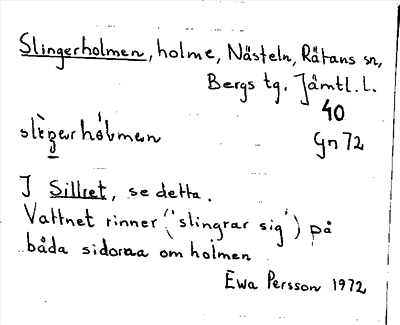 Slingerholmen, holme, Nästeln, Rätans sn,
Bergs tg. Jämtl. l.
40
slìŋerhólmen
Gn 72
I Sillret, se detta.
Vattnet rinner ('slingrar sig') på
båda sidorna om holmen
Ewa Persson 1972